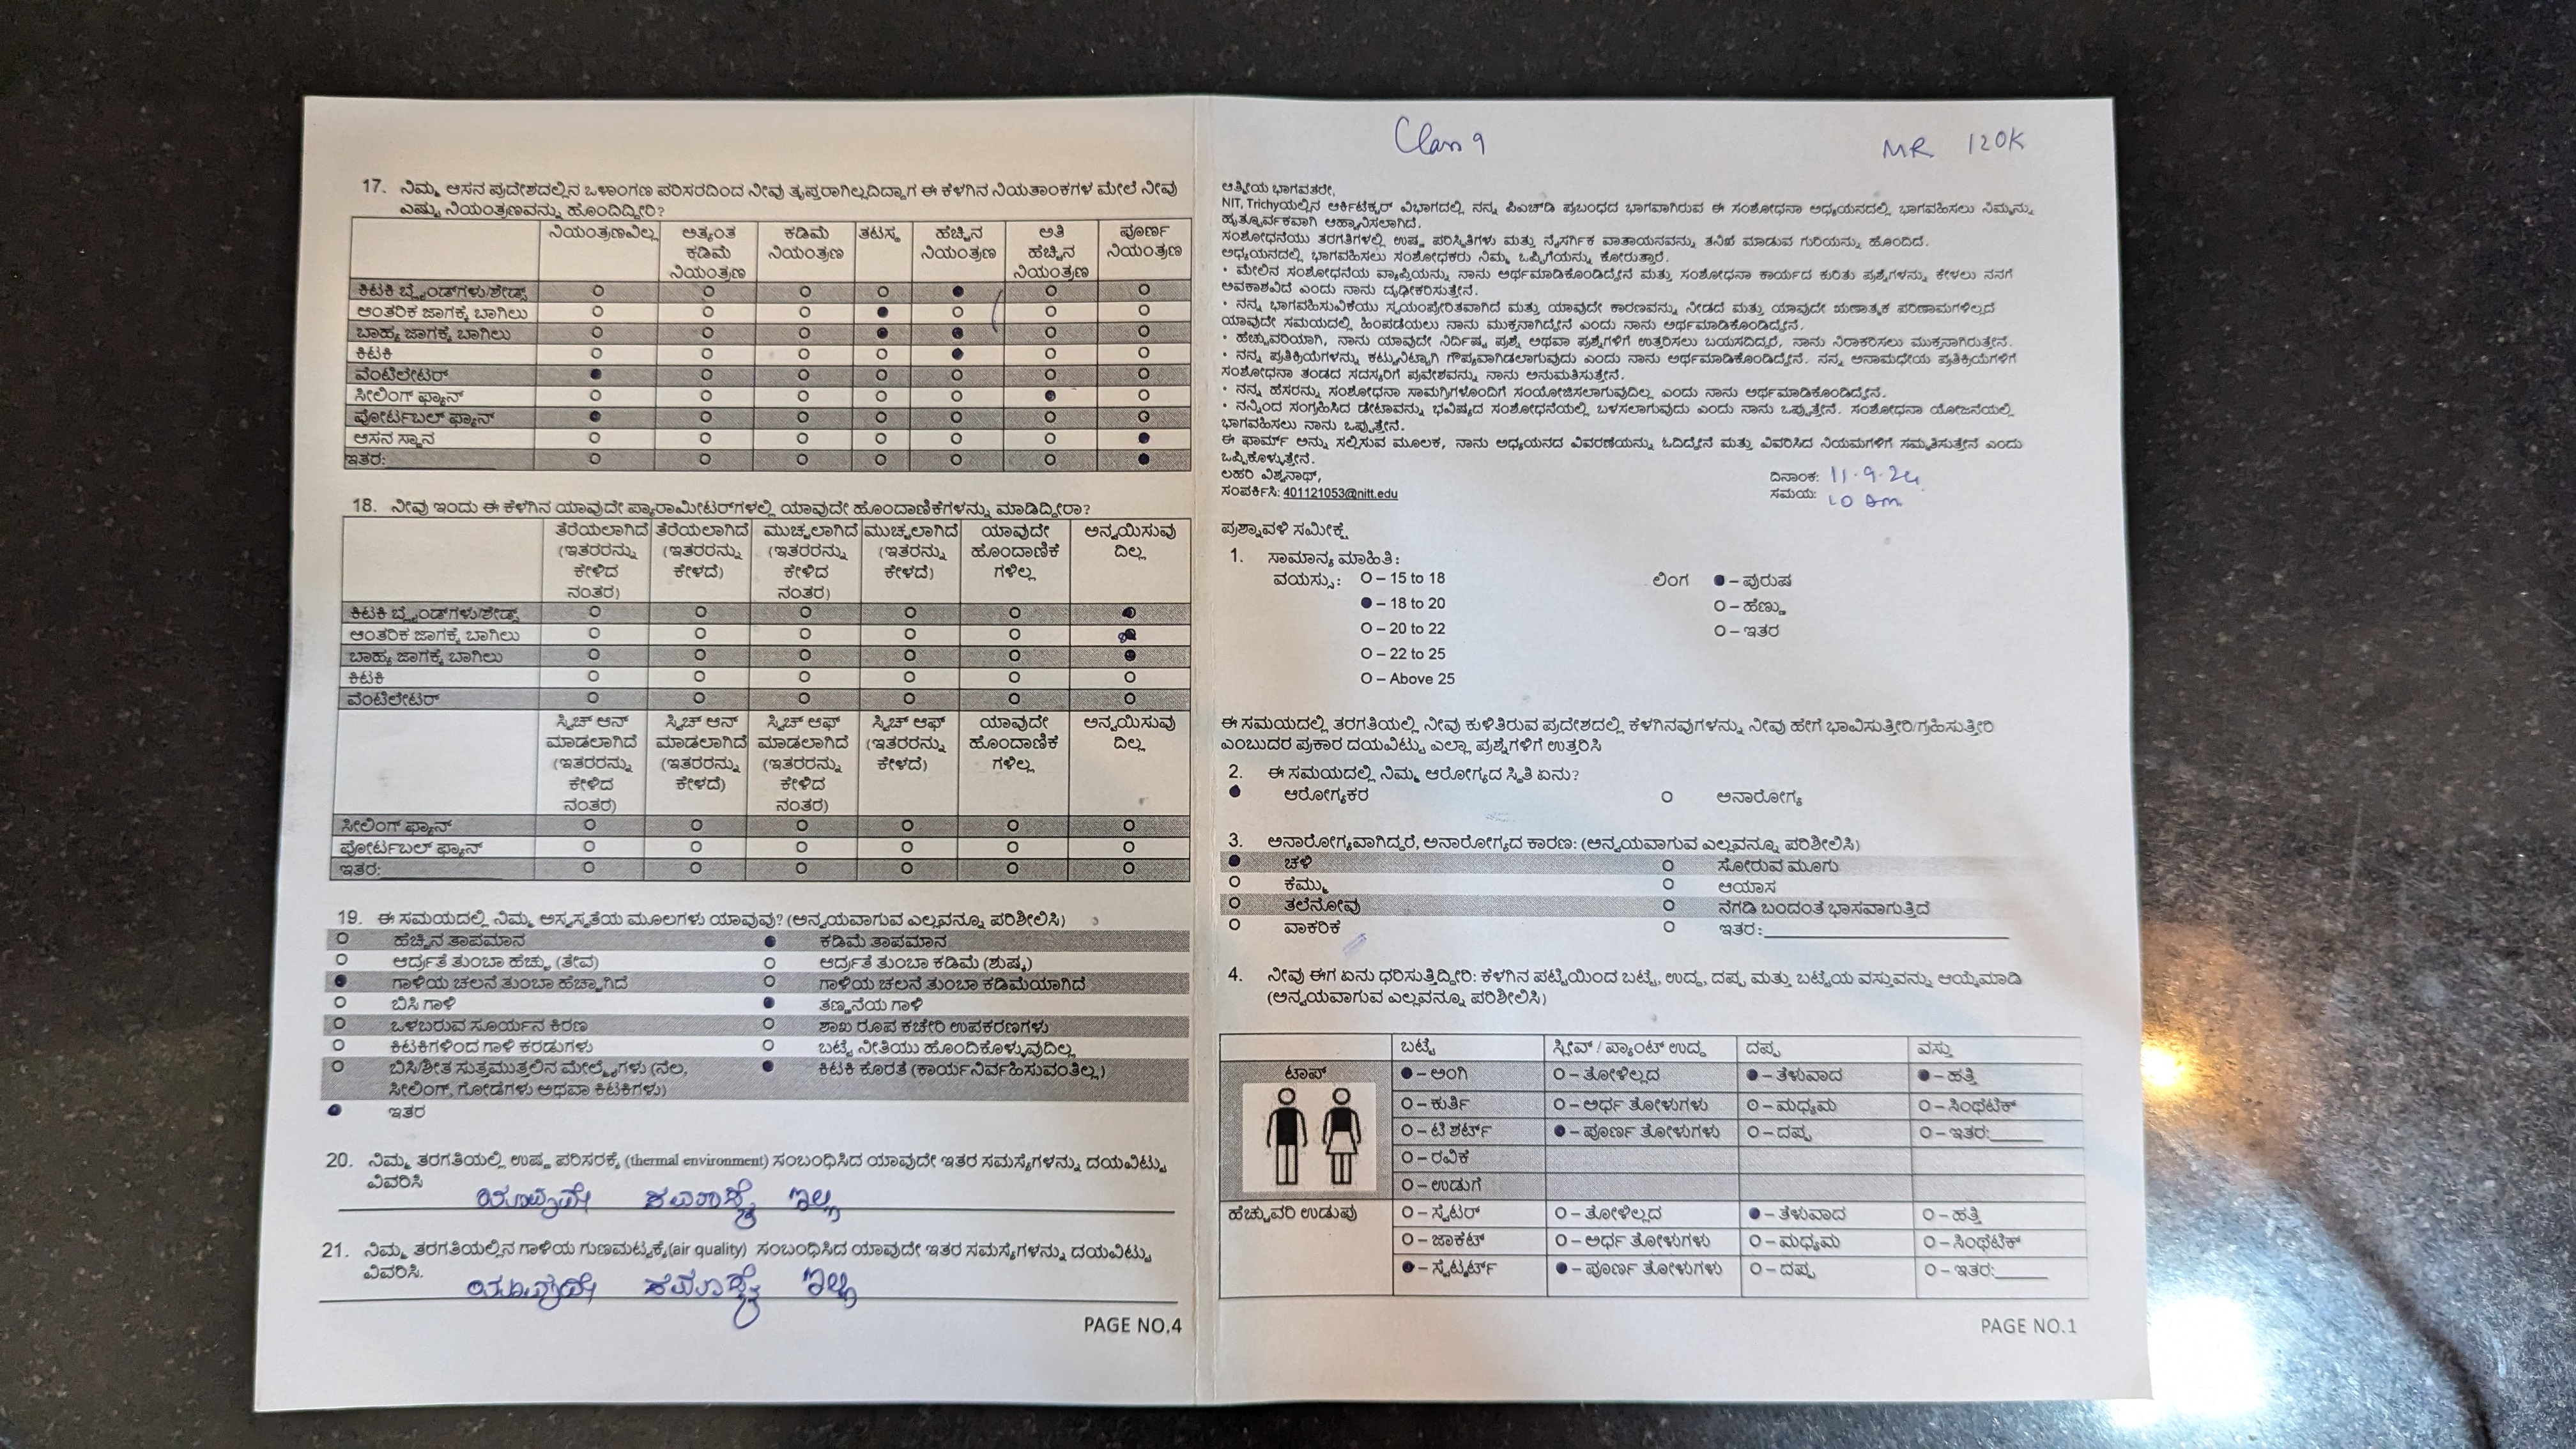 17. ನಿಮ್ಮ ಆಸನ ಪ್ರದೇಶದಲ್ಲಿನ ಒಳಾಂಗಣ ಪರಿಸರದಿಂದ ನೀವು ತೃಪ್ತರಾಗಿಲ್ಲದಿದ್ದಾಗ ಈ ಕೆಳಗಿನ ನಿಯತಾಂಕಗಳ ಮೇಲೆ ನೀವು
ಎಷ್ಟು ನಿಯಂತ್ರಣವನ್ನು ಹೊಂದಿದ್ದೀರಿ?
ನಿಯಂತ್ರಣವಿಲ್ಲ ಅತ್ಯಂತ ಕಡಿಮೆ ನಿಯಂತ್ರಣ ಕಡಿಮೆ ನಿಯಂತ್ರಣ ತಟಸ್ಥ ಹೆಚ್ಚಿನ ನಿಯಂತ್ರಣ ಅತಿ ಹೆಚ್ಚಿನ ನಿಯಂತ್ರಣ ಪೂರ್ಣ ನಿಯಂತ್ರಣ
ಕಿಟಕಿ ಬ್ಲೈಂಡ್‌ಗಳು/ಶೇಡ್ಸ್
ಆಂತರಿಕ ಜಾಗಕ್ಕೆ ಬಾಗಿಲು
ಬಾಹ್ಯ ಜಾಗಕ್ಕೆ ಬಾಗಿಲು
ಕಿಟಕಿ
ವೆಂಟಿಲೇಟರ್
ಸೀಲಿಂಗ್ ಫ್ಯಾನ್
ಪೋರ್ಟಬಲ್ ಫ್ಯಾನ್
ಆಸನ ಸ್ಥಾನ
ಇತರ:
18. ನೀವು ಇಂದು ಈ ಕೆಳಗಿನ ಯಾವುದೇ ಪ್ಯಾರಾಮೀಟರ್‌ಗಳಲ್ಲಿ ಯಾವುದೇ ಹೊಂದಾಣಿಕೆಗಳನ್ನು ಮಾಡಿದ್ದೀರಾ?
ತೆರೆಯಲಾಗಿದೆ (ಇತರರನ್ನು ಕೇಳಿದ ನಂತರ) ತೆರೆಯಲಾಗಿದೆ (ಇತರರನ್ನು ಕೇಳದೆ) ಮುಚ್ಚಲಾಗಿದೆ (ಇತರರನ್ನು ಕೇಳಿದ ನಂತರ) ಮುಚ್ಚಲಾಗಿದೆ (ಇತರರನ್ನು ಕೇಳದೆ) ಯಾವುದೇ ಹೊಂದಾಣಿಕೆಗಳಿಲ್ಲ ಅನ್ವಯಿಸುವುದಿಲ್ಲ
ಕಿಟಕಿ ಬ್ಲೈಂಡ್‌ಗಳು/ಶೇಡ್ಸ್
ಆಂತರಿಕ ಜಾಗಕ್ಕೆ ಬಾಗಿಲು
ಬಾಹ್ಯ ಜಾಗಕ್ಕೆ ಬಾಗಿಲು
ಕಿಟಕಿ
ವೆಂಟಿಲೇಟರ್
ಸ್ವಿಚ್ ಆನ್ ಮಾಡಲಾಗಿದೆ (ಇತರರನ್ನು ಕೇಳಿದ ನಂತರ) ಸ್ವಿಚ್ ಆನ್ ಮಾಡಲಾಗಿದೆ (ಇತರರನ್ನು ಕೇಳದೆ) ಸ್ವಿಚ್ ಆಫ್ ಮಾಡಲಾಗಿದೆ (ಇತರರನ್ನು ಕೇಳಿದ ನಂತರ) ಸ್ವಿಚ್ ಆಫ್ (ಇತರರನ್ನು ಕೇಳದೆ) ಯಾವುದೇ ಹೊಂದಾಣಿಕೆಗಳಿಲ್ಲ ಅನ್ವಯಿಸುವುದಿಲ್ಲ
ಸೀಲಿಂಗ್ ಫ್ಯಾನ್
ಪೋರ್ಟಬಲ್ ಫ್ಯಾನ್
ಇತರ:
19. ಈ ಸಮಯದಲ್ಲಿ ನಿಮ್ಮ ಅಸ್ವಸ್ಥತೆಯ ಮೂಲಗಳು ಯಾವುವು? (ಅನ್ವಯವಾಗುವ ಎಲ್ಲವನ್ನೂ ಪರಿಶೀಲಿಸಿ)
ಹೆಚ್ಚಿನ ತಾಪಮಾನ ಕಡಿಮೆ ತಾಪಮಾನ
ಆರ್ದ್ರತೆ ತುಂಬಾ ಹೆಚ್ಚು (ತೇವ) ಆರ್ದ್ರತೆ ತುಂಬಾ ಕಡಿಮೆ (ಶುಷ್ಕ)
ಗಾಳಿಯ ಚಲನೆ ತುಂಬಾ ಹೆಚ್ಚಾಗಿದೆ ಗಾಳಿಯ ಚಲನೆ ತುಂಬಾ ಕಡಿಮೆಯಾಗಿದೆ
ಬಿಸಿ ಗಾಳಿ ತಣ್ಣನೆಯ ಗಾಳಿ
ಒಳಬರುವ ಸೂರ್ಯನ ಕಿರಣ ಶಾಖ ರೂಪ ಕಚೇರಿ ಉಪಕರಣಗಳು
ಕಿಟಕಿಗಳಿಂದ ಗಾಳಿ ಕರಡುಗಳು ಬಟ್ಟೆ ನೀತಿಯು ಹೊಂದಿಕೊಳ್ಳುವುದಿಲ್ಲ
ಬಿಸಿ/ಶೀತ ಸುತ್ತಮುತ್ತಲಿನ ಮೇಲ್ಮೈಗಳು (ನೆಲ, ಕಿಟಕಿ ಕೊರತೆ (ಕಾರ್ಯನಿರ್ವಹಿಸುವಂತಿಲ್ಲ)
ಸೀಲಿಂಗ್, ಗೋಡೆಗಳು ಅಥವಾ ಕಿಟಕಿಗಳು)
ಇತರ
20. ನಿಮ್ಮ ತರಗತಿಯಲ್ಲಿ ಉಷ್ಣ ಪರಿಸರಕ್ಕೆ (thermal environment) ಸಂಬಂಧಿಸಿದ ಯಾವುದೇ ಇತರ ಸಮಸ್ಯೆಗಳನ್ನು ದಯವಿಟ್ಟು
ವಿವರಿಸಿ
ಯಾವುದೇ ಸಮಸ್ಯೆ ಇಲ್ಲ
21. ನಿಮ್ಮ ತರಗತಿಯಲ್ಲಿನ ಗಾಳಿಯ ಗುಣಮಟ್ಟಕ್ಕೆ(air quality) ಸಂಬಂಧಿಸಿದ ಯಾವುದೇ ಇತರ ಸಮಸ್ಯೆಗಳನ್ನು ದಯವಿಟ್ಟು
ವಿವರಿಸಿ.
ಯಾವುದೇ ಸಮಸ್ಯೆ ಇಲ್ಲ
PAGE NO.4
Class 9 MR 120K
ಆತ್ಮೀಯ ಭಾಗವತರೇ,
NIT, Trichyಯಲ್ಲಿನ ಆರ್ಕಿಟೆಕ್ಚರ್ ವಿಭಾಗದಲ್ಲಿ ನನ್ನ ಪಿಎಚ್‌ಡಿ ಪ್ರಬಂಧದ ಭಾಗವಾಗಿರುವ ಈ ಸಂಶೋಧನಾ ಅಧ್ಯಯನದಲ್ಲಿ ಭಾಗವಹಿಸಲು ನಿಮ್ಮನ್ನು
ಹೃತ್ಪೂರ್ವಕವಾಗಿ ಆಹ್ವಾನಿಸಲಾಗಿದೆ.
ಸಂಶೋಧನೆಯು ತರಗತಿಗಳಲ್ಲಿ ಉಷ್ಣ ಪರಿಸ್ಥಿತಿಗಳು ಮತ್ತು ನೈಸರ್ಗಿಕ ವಾತಾಯನವನ್ನು ತನಿಖೆ ಮಾಡುವ ಗುರಿಯನ್ನು ಹೊಂದಿದೆ.
ಅಧ್ಯಯನದಲ್ಲಿ ಭಾಗವಹಿಸಲು ಸಂಶೋಧಕರು ನಿಮ್ಮ ಒಪ್ಪಿಗೆಯನ್ನು ಕೋರುತ್ತಾರೆ.
• ಮೇಲಿನ ಸಂಶೋಧನೆಯ ವ್ಯಾಪ್ತಿಯನ್ನು ನಾನು ಅರ್ಥಮಾಡಿಕೊಂಡಿದ್ದೇನೆ ಮತ್ತು ಸಂಶೋಧನಾ ಕಾರ್ಯದ ಕುರಿತು ಪ್ರಶ್ನೆಗಳನ್ನು ಕೇಳಲು ನನಗೆ
ಅವಕಾಶವಿದೆ ಎಂದು ನಾನು ದೃಢೀಕರಿಸುತ್ತೇನೆ.
• ನನ್ನ ಭಾಗವಹಿಸುವಿಕೆಯು ಸ್ವಯಂಪ್ರೇರಿತವಾಗಿದೆ ಮತ್ತು ಯಾವುದೇ ಕಾರಣವನ್ನು ನೀಡದೆ ಮತ್ತು ಯಾವುದೇ ಋಣಾತ್ಮಕ ಪರಿಣಾಮಗಳಿಲ್ಲದೆ
ಯಾವುದೇ ಸಮಯದಲ್ಲಿ ಹಿಂಪಡೆಯಲು ನಾನು ಮುಕ್ತನಾಗಿದ್ದೇನೆ ಎಂದು ನಾನು ಅರ್ಥಮಾಡಿಕೊಂಡಿದ್ದೇನೆ.
• ಹೆಚ್ಚುವರಿಯಾಗಿ, ನಾನು ಯಾವುದೇ ನಿರ್ದಿಷ್ಟ ಪ್ರಶ್ನೆ ಅಥವಾ ಪ್ರಶ್ನೆಗಳಿಗೆ ಉತ್ತರಿಸಲು ಬಯಸದಿದ್ದರೆ, ನಾನು ನಿರಾಕರಿಸಲು ಮುಕ್ತನಾಗಿರುತ್ತೇನೆ.
• ನನ್ನ ಪ್ರತಿಕ್ರಿಯೆಗಳನ್ನು ಕಟ್ಟುನಿಟ್ಟಾಗಿ ಗೌಪ್ಯವಾಗಿಡಲಾಗುವುದು ಎಂದು ನಾನು ಅರ್ಥಮಾಡಿಕೊಂಡಿದ್ದೇನೆ. ನನ್ನ ಅನಾಮಧೇಯ ಪ್ರತಿಕ್ರಿಯೆಗಳಿಗೆ
ಸಂಶೋಧನಾ ತಂಡದ ಸದಸ್ಯರಿಗೆ ಪ್ರವೇಶವನ್ನು ನಾನು ಅನುಮತಿಸುತ್ತೇನೆ.
• ನನ್ನ ಹೆಸರನ್ನು ಸಂಶೋಧನಾ ಸಾಮಗ್ರಿಗಳೊಂದಿಗೆ ಸಂಯೋಜಿಸಲಾಗುವುದಿಲ್ಲ ಎಂದು ನಾನು ಅರ್ಥಮಾಡಿಕೊಂಡಿದ್ದೇನೆ.
• ನನ್ನಿಂದ ಸಂಗ್ರಹಿಸಿದ ಡೇಟಾವನ್ನು ಭವಿಷ್ಯದ ಸಂಶೋಧನೆಯಲ್ಲಿ ಬಳಸಲಾಗುವುದು ಎಂದು ನಾನು ಒಪ್ಪುತ್ತೇನೆ. ಸಂಶೋಧನಾ ಯೋಜನೆಯಲ್ಲಿ
ಭಾಗವಹಿಸಲು ನಾನು ಒಪ್ಪುತ್ತೇನೆ.
ಈ ಫಾರ್ಮ್ ಅನ್ನು ಸಲ್ಲಿಸುವ ಮೂಲಕ, ನಾನು ಅಧ್ಯಯನದ ವಿವರಣೆಯನ್ನು ಓದಿದ್ದೇನೆ ಮತ್ತು ವಿವರಿಸಿದ ನಿಯಮಗಳಿಗೆ ಸಮ್ಮತಿಸುತ್ತೇನೆ ಎಂದು
ಒಪ್ಪಿಕೊಳ್ಳುತ್ತೇನೆ.
ಲಹರಿ ವಿಶ್ವನಾಥ್, ದಿನಾಂಕ: 11.9.24
ಸಂಪರ್ಕಿಸಿ: 401121053@nitt.edu ಸಮಯ: 10 am
ಪ್ರಶ್ನಾವಳಿ ಸಮೀಕ್ಷೆ
1. ಸಾಮಾನ್ಯ ಮಾಹಿತಿ:
ವಯಸ್ಸು: O – 15 to 18 ಲಿಂಗ ● – ಪುರುಷ
● – 18 to 20 O – ಹೆಣ್ಣು
O – 20 to 22 O – ಇತರ
O – 22 to 25
O – Above 25
ಈ ಸಮಯದಲ್ಲಿ ತರಗತಿಯಲ್ಲಿ ನೀವು ಕುಳಿತಿರುವ ಪ್ರದೇಶದಲ್ಲಿ ಕೆಳಗಿನವುಗಳನ್ನು ನೀವು ಹೇಗೆ ಭಾವಿಸುತ್ತೀರಿ/ಗ್ರಹಿಸುತ್ತೀರಿ
ಎಂಬುದರ ಪ್ರಕಾರ ದಯವಿಟ್ಟು ಎಲ್ಲಾ ಪ್ರಶ್ನೆಗಳಿಗೆ ಉತ್ತರಿಸಿ
2. ಈ ಸಮಯದಲ್ಲಿ ನಿಮ್ಮ ಆರೋಗ್ಯದ ಸ್ಥಿತಿ ಏನು?
ಆರೋಗ್ಯಕರ ಅನಾರೋಗ್ಯ
3. ಅನಾರೋಗ್ಯವಾಗಿದ್ದರೆ, ಅನಾರೋಗ್ಯದ ಕಾರಣ: (ಅನ್ವಯವಾಗುವ ಎಲ್ಲವನ್ನೂ ಪರಿಶೀಲಿಸಿ)
ಚಳಿ ಸೋರುವ ಮೂಗು
ಕೆಮ್ಮು ಆಯಾಸ
ತಲೆನೋವು ನೆಗಡಿ ಬಂದಂತೆ ಭಾಸವಾಗುತ್ತಿದೆ
ವಾಕರಿಕೆ ಇತರ:
4. ನೀವು ಈಗ ಏನು ಧರಿಸುತ್ತಿದ್ದೀರಿ: ಕೆಳಗಿನ ಪಟ್ಟಿಯಿಂದ ಬಟ್ಟೆ, ಉದ್ದ, ದಪ್ಪ ಮತ್ತು ಬಟ್ಟೆಯ ವಸ್ತುವನ್ನು ಆಯ್ಕೆಮಾಡಿ
(ಅನ್ವಯವಾಗುವ ಎಲ್ಲವನ್ನೂ ಪರಿಶೀಲಿಸಿ)
ಬಟ್ಟೆ ಸ್ಲೀವ್ / ಪ್ಯಾಂಟ್ ಉದ್ದ ದಪ್ಪ ವಸ್ತು
ಟಾಪ್ ● – ಅಂಗಿ O – ತೋಳಿಲ್ಲದ ● – ತೆಳುವಾದ ● – ಹತ್ತಿ
O – ಕುರ್ತಿ O – ಅರ್ಧ ತೋಳುಗಳು O – ಮಧ್ಯಮ O – ಸಿಂಥೆಟಿಕ್
O – ಟಿ ಶರ್ಟ್ ● – ಪೂರ್ಣ ತೋಳುಗಳು O – ದಪ್ಪ O – ಇತರ:
O – ರವಿಕೆ
O – ಉಡುಗೆ
ಹೆಚ್ಚುವರಿ ಉಡುಪು O – ಸ್ವೆಟರ್ O – ತೋಳಿಲ್ಲದ ● – ತೆಳುವಾದ O – ಹತ್ತಿ
O – ಜಾಕೆಟ್ O – ಅರ್ಧ ತೋಳುಗಳು O – ಮಧ್ಯಮ O – ಸಿಂಥೆಟಿಕ್
● – ಸ್ವೆಟ್ಶರ್ಟ್ ● – ಪೂರ್ಣ ತೋಳುಗಳು O – ದಪ್ಪ O – ಇತರ:
PAGE NO.1